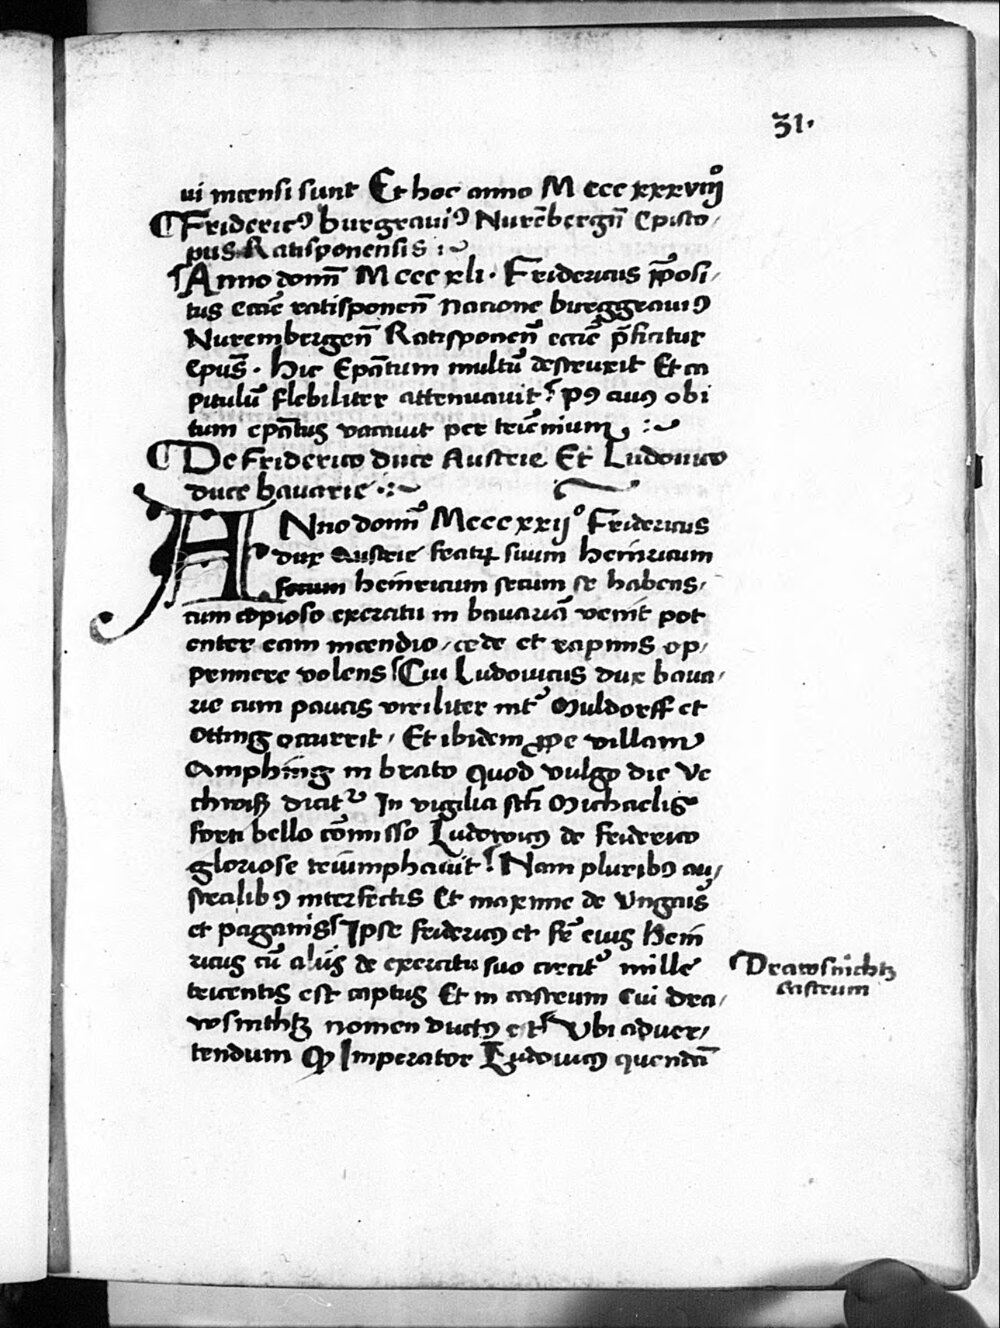 31.
ui incensi sunt Et hoc anno M ccc xxxviijͦ
¶ Fridericꝰ burgrauiꝰ Nurēbergn̄ Episco-
pus Ratisponensis :~
¶ Anno domī M ccc xli · Fridericus p̄posi-
tus eccīe ratisponen̄ nacione burggrauiꝰ
Nurembergen̄ Ratisponen̄ eccīe p̄ficitur
Epūs · hic Epātum multū destruxit Et ca
pitulū flebiliter attenuauit : pꝰ cuiꝰ obi
tum epātus vacauit per trieñium :~
¶ De Friderico duce Austrie Et Ludouico
duce bauarie :~
ANno domī Mcccxxijͦ Fridericus
dux Austrie fratrē suum heinricum
secum heinricum secum se habens,
cum copioso exercitu in bauariā venit pot
enter eam incendio, cede et rapinis op-
primere volens Cui Ludouicus dux baua-
rie cum paucis viriliter int̓ Muldorff et
Otting occurrit, Et ibidem ꝓpe villam
Amphing in brato quod vulgo die Ve
chwiß dicit᷑ In vigilia scī Michaelis
forti bello cōmisso Ludowicꝰ de friderico
gloriose triumphauit : Nam pluribꝰ au-
stralibꝰ interfectis Et maxime de Vngaris
et paganis Ipse fridericꝰ et fr̄ eius hein
ricus cū alijs de exercitu suo circit̓ mille
tricentis est captus Et in castrum cui dra-
wsnithz nomen ductꝰ est Vbi aduer-
tendum ꝙ Imperator Ludouicꝰ quendā
Drawsnichtz
castrum